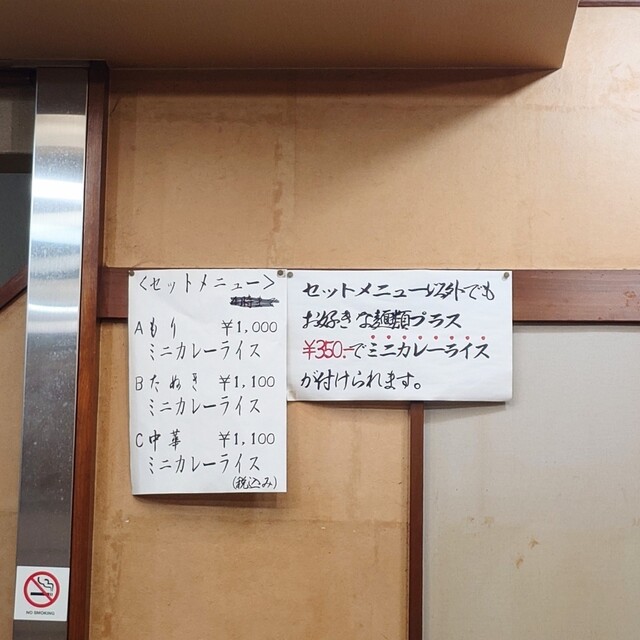 <セットメニュー>
Aもり ¥1,000
ミニカレーライス
Bたぬき ¥1,100
ミニカレーライス
C中華 ¥1,100
ミニカレーライス
(税込み)
セットメニュー以外でも
お好きな麺類プラス
¥350-でミニカレーライス
が付けられます。
NO SMOKING